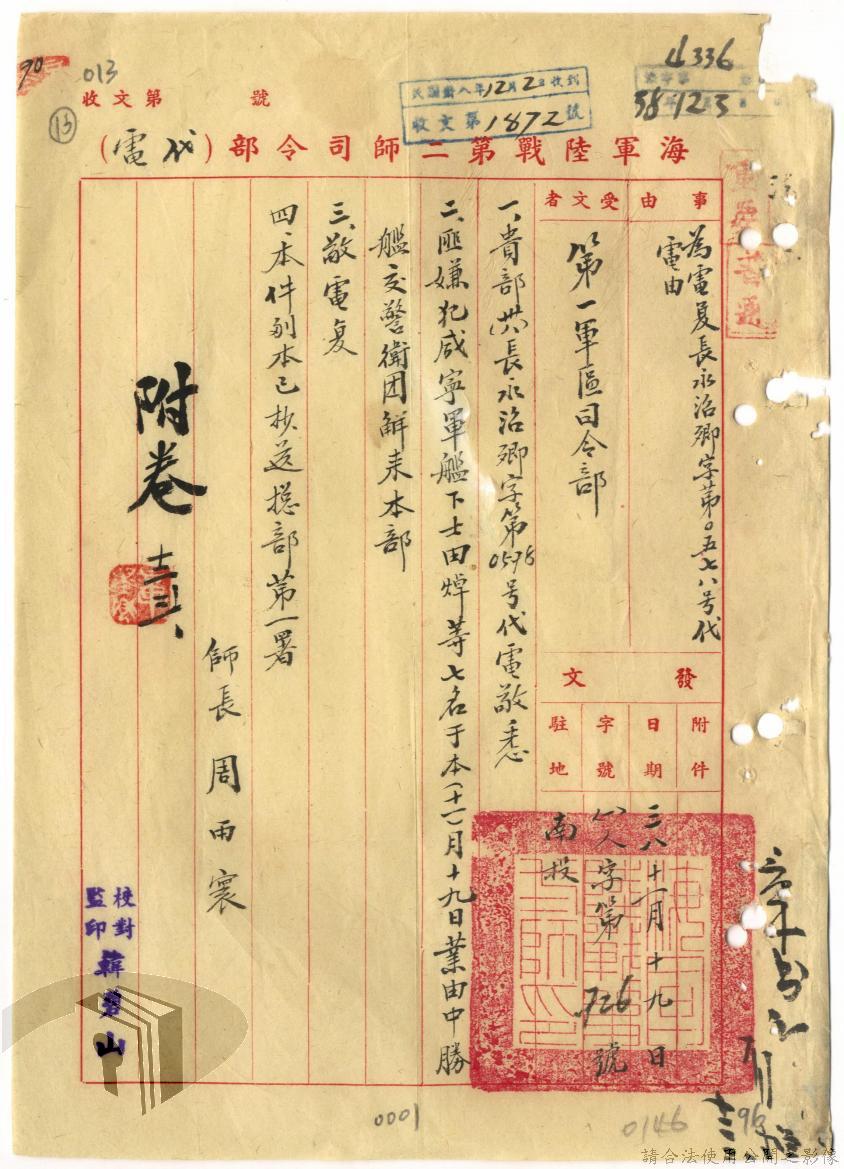 4336
013
90
第 號
收文
民國卅八年12月2日收到
收文第1872號
38 12 3
13
海軍陸戰第二師司令部(代電)
事由
為電复長永治卿字第〇五七八号代
電由
受文者
第一軍區司令部
發文
附件
日期
三八 十一月十九日
字號
人字第726號
駐地
南投
一、貴部(卅八)長永治卿字第0578号代電敬悉
二、匪嫌犯咸寧軍艦下士田焯等七名于本(十一)月十九日業由中勝
艦交警衛团解來本部
三、敬電复
四、本件副本已抄送總部第一署
師長周雨寰
附卷
十二三、
校對
監印
韓 山
0001
0146
96
請合法使用公開之影像